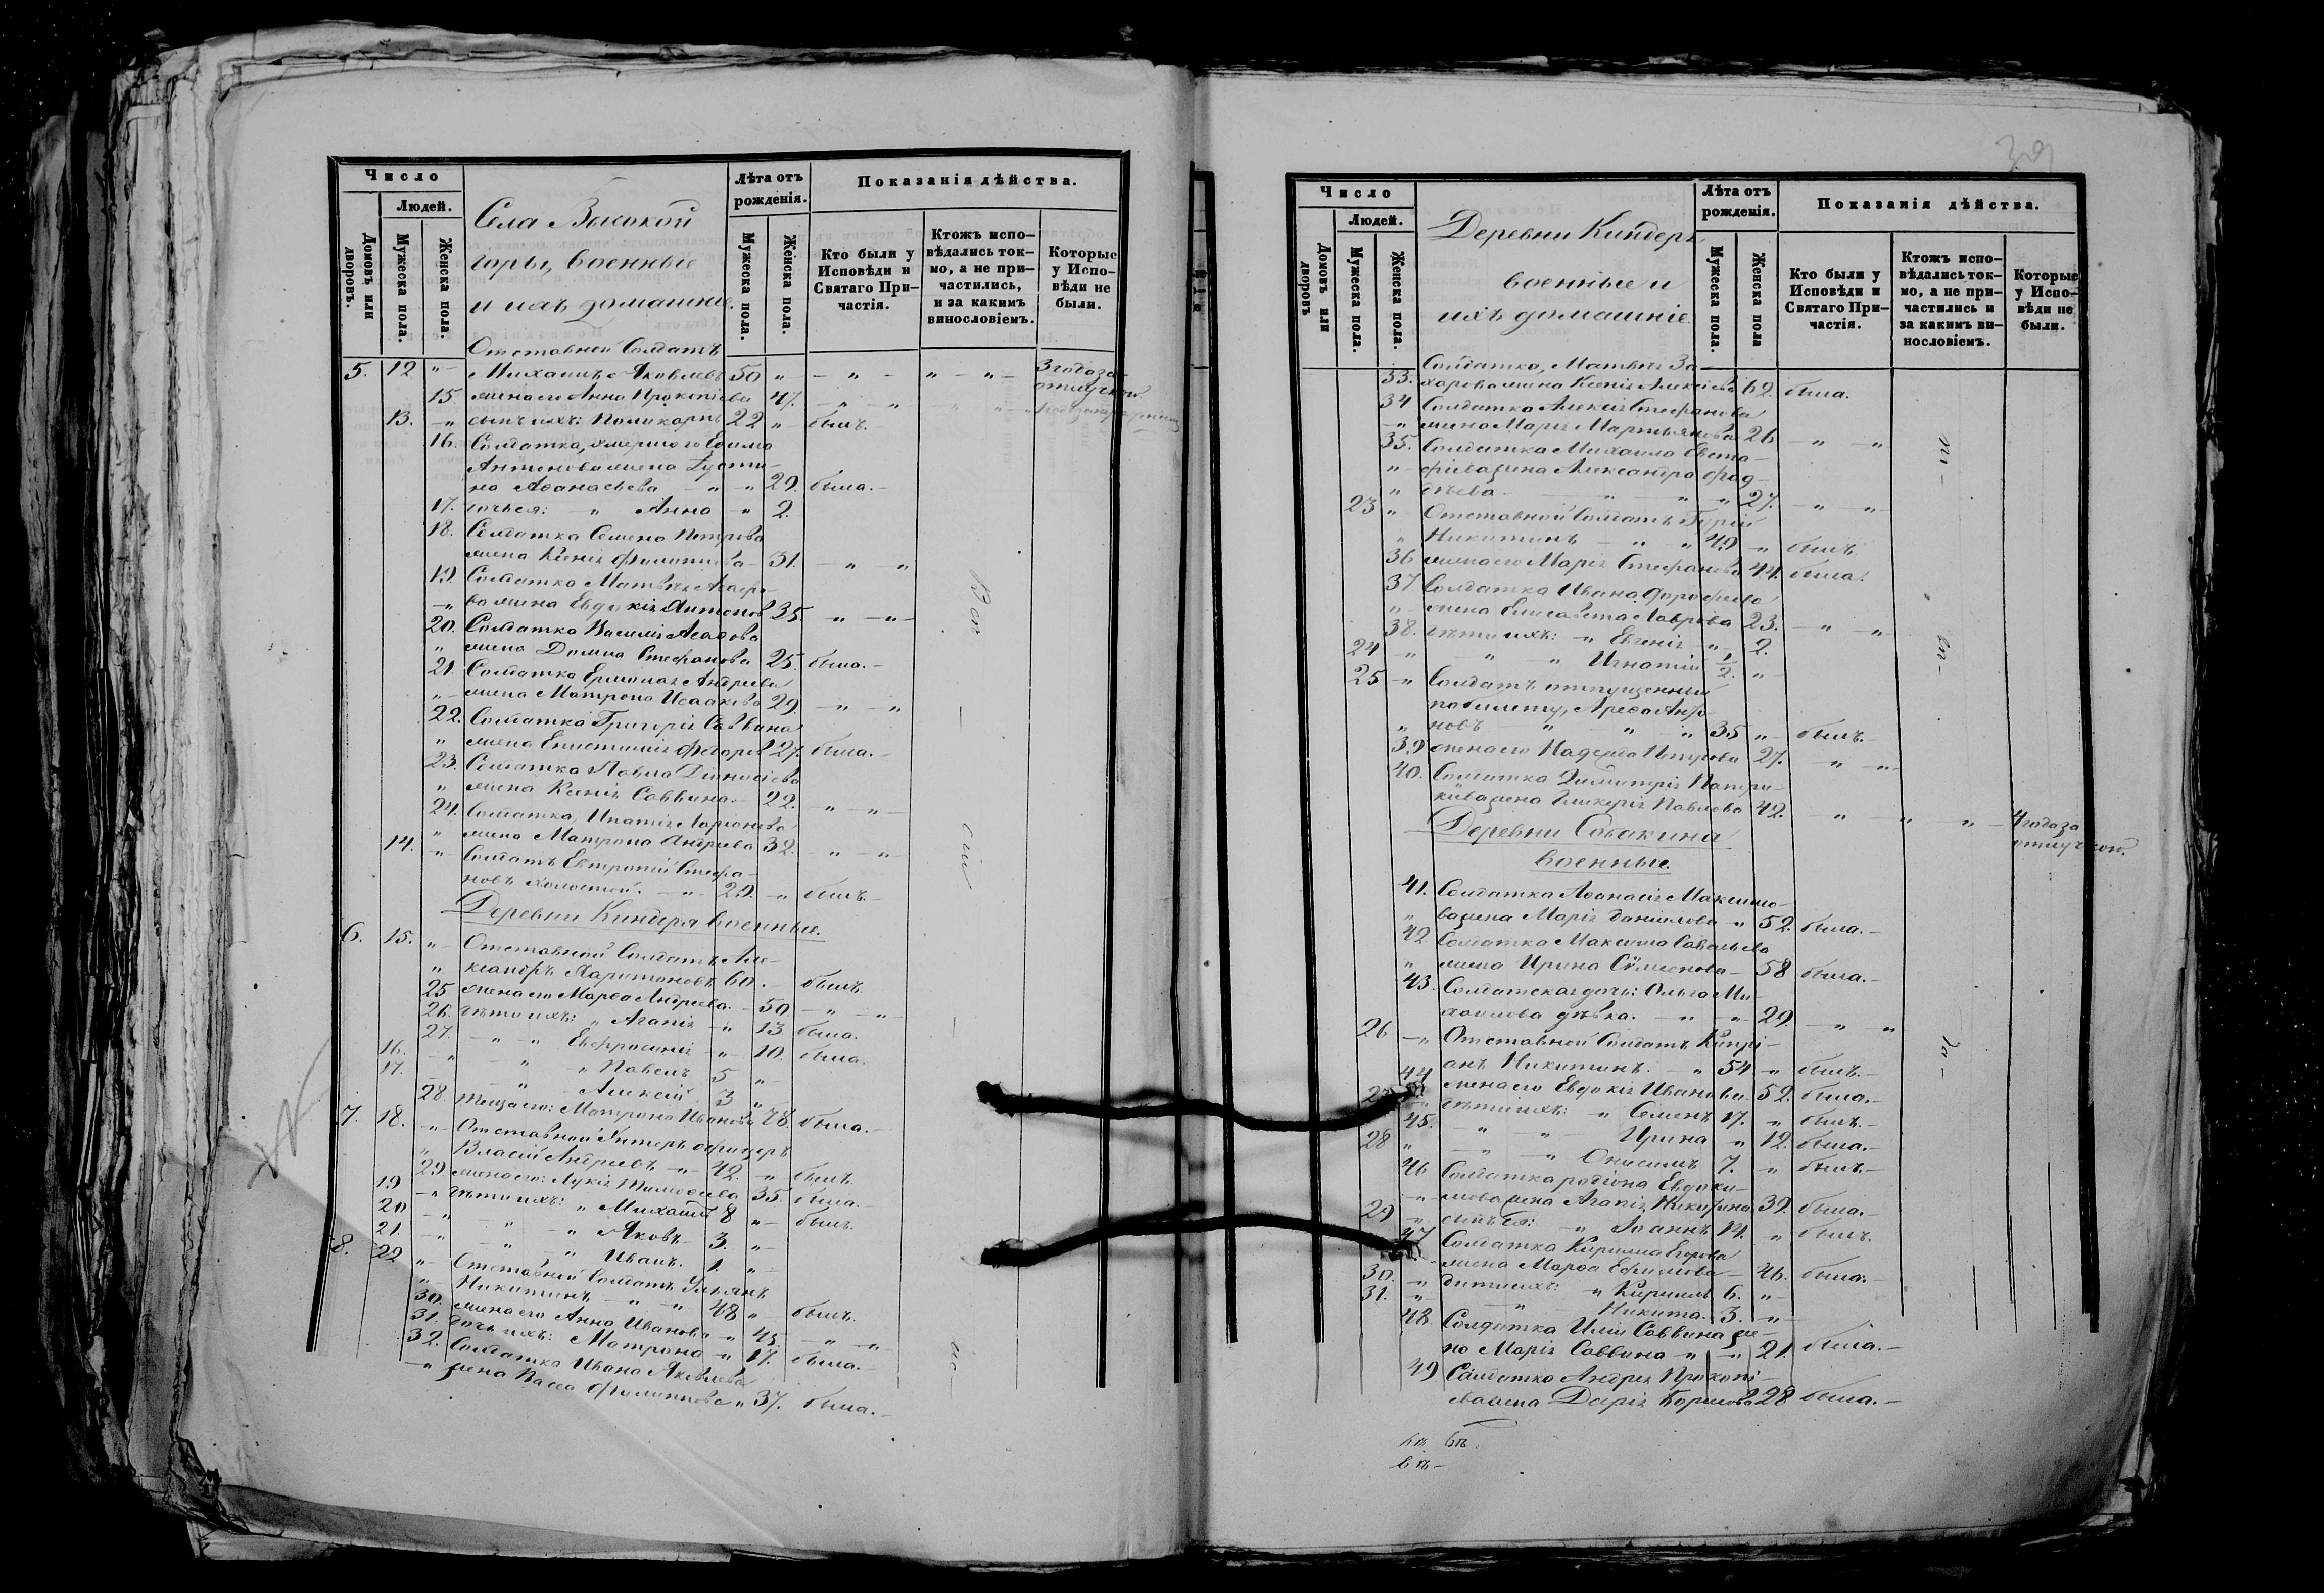 Число
Людей.
Домовъ или дворовъ.
Мужеска пола.
Женска пола.
Села Высокой
горы, военные
и ихъ домашніе.
Лѣта отъ рожденія.
Мужеска пола.
Женска пола.
Показанія дѣйства.
Кто были у Исповѣди и Святаго Причастія.
Ктожъ исповѣдались токмо, а не причастились, и за какимъ винословіемъ.
Которые у Исповѣди не были.
Отставной Солдатъ
5. 12 „ Михаилъ Яковлевъ 50 „ — „ — „ — „ — 3 года за
отлучкою
15 жена его Анна Прокопіева 47. — „ „
13. „ сынъ ихъ: Поликарпъ 22 „ былъ.
16. Солдатка, умершаго Ефима
Антонова жена Іусти-
на Аѳанасьева — „ „ 29. была.—
17. дочь ея: „ Анна „ 2.
18. Солдатка Семена Петрова
жена Ксенія Филиппова 31. — „ „
19. Солдатка Матвѣя Агафо-
„ ва жена Евдокія Антонов. 35. — „ — „ —
20. Солдатка Василія Агафова
„ жена Домна Стефанова 25. была.—
21. Солдатка Ермолая Андреева
„ жена Матрона Исаакова 29. — „ — „
22. Солдатка Григорія Саввина
„ жена Епистимія Федоров. 27. была.—
23. Солдатка Павла Діонисіева
„ жена Ксенія Саввина.— 22. — „ — „
24. Солдатка, Ипатія Ларіонова
„ жена Матрона Андреева 32. — „ — „
14. „ Солдатъ Евтропій Стефа-
новъ холостой. — „ — 29. „ былъ.—
Деревни Киндеря военные.
6. 15. „ Отставной Солдатъ Але-
„ ксандръ Харитоновъ 60. — былъ.
25 жена его Марѳа Андреева.— 50 — „ — „
26. дѣти ихъ: „ Агапія — „ 13 была.
27. — „ — „ Евфросинія — „ — 10. была.
16. — „ — „ „ Павелъ 5 „ —
17. „ Алексій 3 „
28. теща его: Матрона Иванова 78. была.—
7. 18. „ Отставной Унтеръ офицеръ
„ Власій Андреевъ — „ — 42. „ былъ.
29 жена его: Лукія Тимофеева 35. была.—
19 „ дѣти ихъ: „ Михаилъ 8 „ — былъ.
20 „ — „ — „ Яковъ 3. „ —
21. — „ — „ Иванъ. 1. „ —
8. 22 „ Отставной Солдатъ Ульянъ
„ Никитинъ — „ — „ 48 „ — былъ.
30. жена его Анна Иванова „ 45. — „ — „
31. дочь ихъ: Матрона „ 17. была.—
32. Солдатка Ивана Яковлева
„ жена Васса Филиппова „ 37. была.—
39
Число
Людей.
Домовъ или дворовъ
Мужеска пола.
Женска пола.
Деревни Киндеръ
военные и
ихъ домашніе.
Лѣта отъ рожденія.
Мужеска пола.
Женска пола
Показанія дѣйства.
Кто были у Исповѣди и Святаго Причастія.
Ктожъ исповѣдались токмо, а не причастились и за какимъ винословіемъ.
Которые у Исповѣди не были.
Солдатка, Матвѣя За-
33. харова жена Ксенія Алексіева 62. была.
34 Солдатка Алексія Стефанова
„ жена Марія Мартьянова 26 — „ — „
35. Солдатка Михаила Евста-
„ фіева жена Александра Фад-
„ дѣева — „ — „ — „ 27. — „ — „
23 „ Отставной Солдатъ Гурій
„ Никитинъ — „ — „ 49 „ былъ
36 жена его Марія Стефанова 44. была.
37 Солдатка Ивана Дорофеева
„ жена Елисавета Лаврова 23. — „ — „
38. дѣти ихъ: „ Евгенія — „ 2.
24 „ — „ — „ Игнатій 1/2. „
25 „ Солдатъ отпущенный
по билету, Арефа Анто-
„ новъ „ „ „ 35 „ былъ.—
39 жена его Надежда Петрова 27. — „ — „
40. Солдатка Димитрія Патри-
кіева жена Гликерія Павлова 42. — „ — „ — „ — 4 года за
отлучкою.
Деревни Собакина
военные.
41. Солдатка Аѳанасія Максимо-
„ ва жена Марія Даніилова „ 52. была.—
42 Солдатка Максима Савельева
„ жена Ирина Сѵмеонова — 58 была.—
43. Солдатская дочь: Ольга Ми-
хаилова дѣвка. — „ — „ 29. — „ — „
26 „ Отставной Солдатъ Кипрі-
анъ Никитинъ. — „ 54 „ былъ.—
44 жена его Евдокія Иванова 52. была.—
27 „ дѣти ихъ: „ Семенъ 17. „ былъ.—
45. „ „ Ирина „ 12. была.—
28 „ — „ — „ Онисимъ 7. „ былъ.—
46 Солдатка Родіона Евдоки-
„ мова жена Агапія Никитина 39. была.—
29 „ сынъ ея: „ Іоаннъ 14. „ былъ.
47 Солдатка Кирилла Егорова
„ жена Марѳа Ефимова — 46. была.
30. „ дѣти ихъ: „ Кириллъ 6. „ —
31. „ — „ — Никита. 3. „ —
48. Солдатка Ильи Саввина же-
на Марія Саввина „ „ 21. была.—
49 Солдатка Андрея Прокопі-
ева жена Дарія Борисова 28 была.—